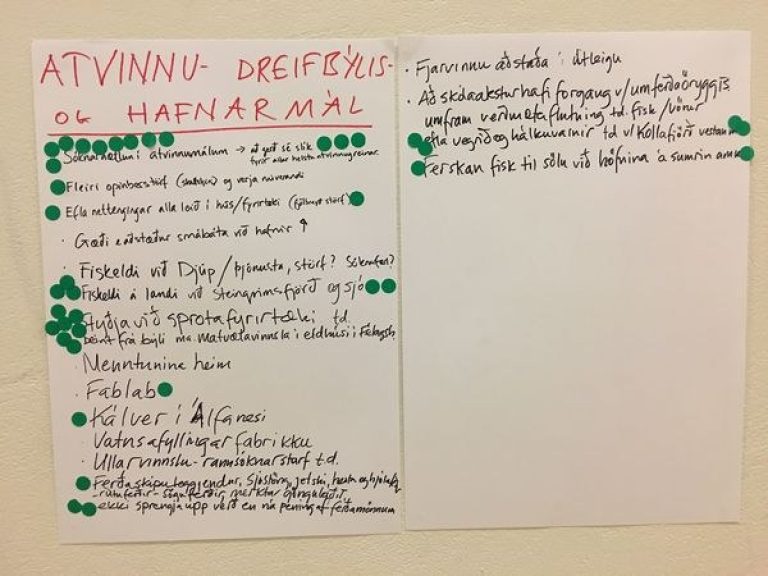 ATVINNU- DREIFBÝLIS-
OG HAFNARMÁL
Sóknaráætlun í atvinnumálum → að gerð sé slík
fyrir allar helstu atvinnugreinar.
Fleiri opinber störf og verja núverandi
Efla nettengingar alla leið í hús/fyrirtæki
Gæði eðstæður smábáta við hafnir ↑
Fiskeldi við Djúp/þjónusta, störf?
Fiskeldi á landi við Steingrímsfjörð og sjó
Styðja við sprotafyrirtæki t.d.
beint frá býli ma. matvælavinnsla í eldhúsi í Félagsh.
Menntunina heim
Fablab
Kálver í Álfanesi
Vatnsáfyllingarfabrikku
Ullarvinnslu- rannsóknarstarf t.d.
Ferðaskipuleggjendur, sjóstöng, jetski, hesta og hjóla
-rútuferðir- söguferðir merktar gönguleiðir
ekki sprengja upp verð en ná pening af ferðamönnum
· Fjarvinnu aðstaða í útleigu
· Að skólaakstur hafi forgang v/umferðaöryggis
umfram verðmætaflutning td. fisk/vörur
efla vegrið og hálkuvarnir td v/Kollafjörð vestanm
Ferskan fisk til sölu við höfnina á sumrin amk